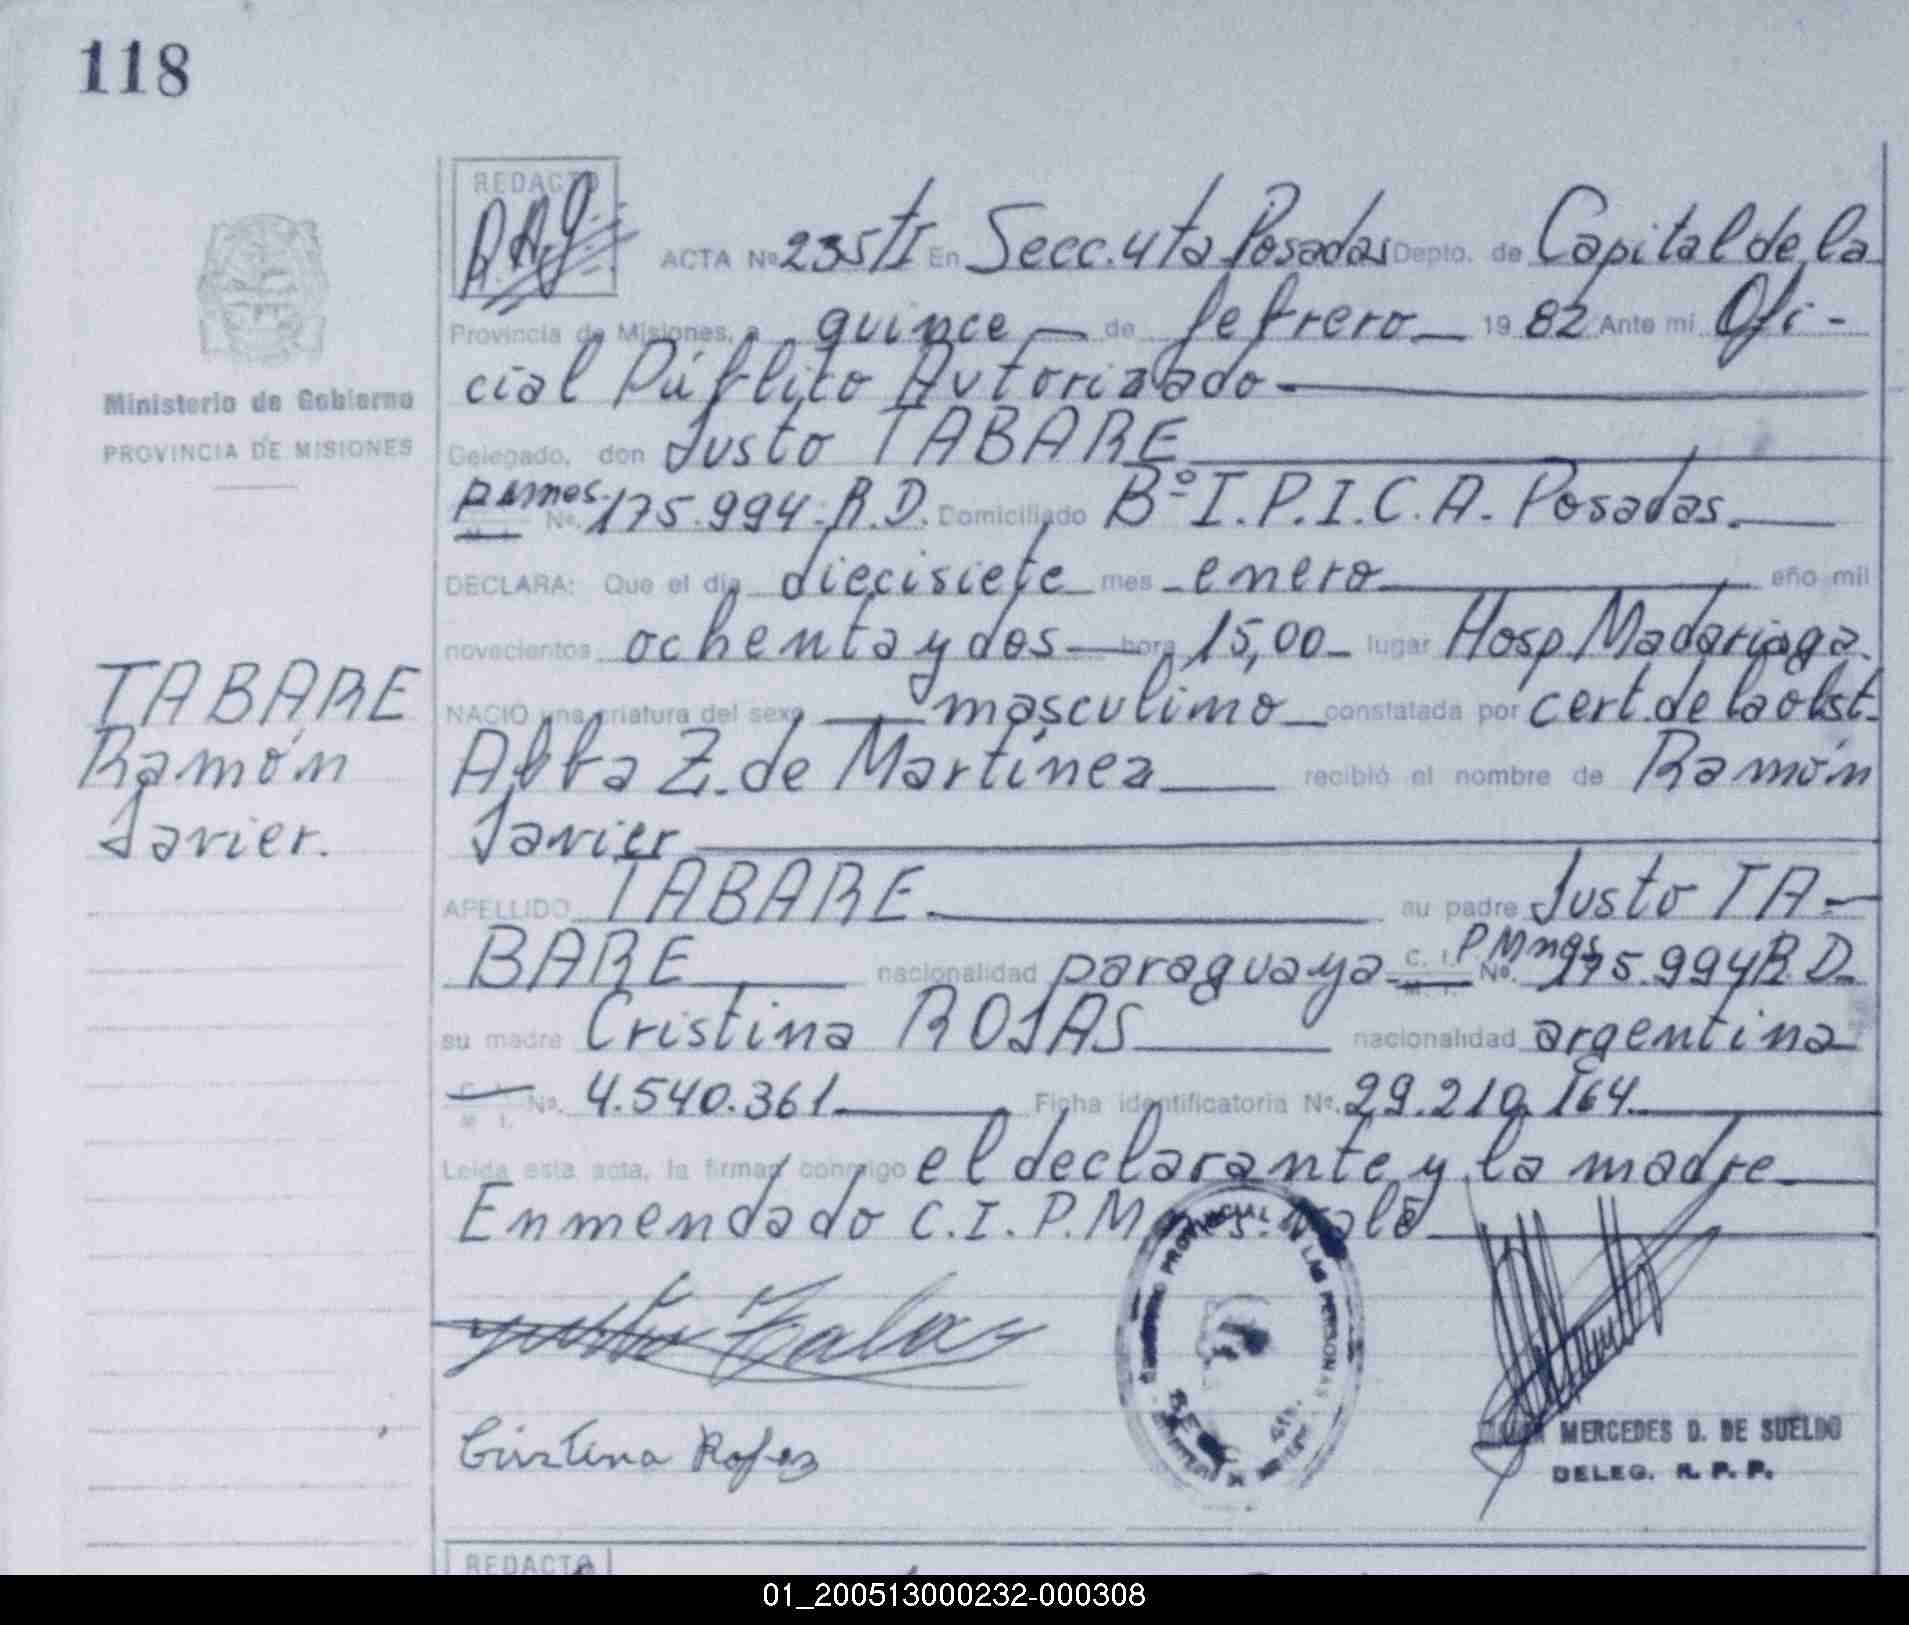 118
REDACTO
ACTA Nº 235 tI En Secc. 4ta Posadas Depto. de Capital de la
Provincia de Misiones, a quince de febrero 1982 Ante mi Ofi-
cial Público Autorizado
Ministerio de Gobierno
PROVINCIA DE MISIONES
Delegado, don Justo TABARE
Nº. 175.994.R.D. Domiciliado Bº I.P.I.C.A. Posadas.
DECLARA: Que el día diecisiete mes enero año mil
novecientos ochenta y dos hora 15,00 lugar Hosp. Madariaga.
NACIO una criatura del sexo masculino constatada por cert. de la obst.
Alba Z. de Martínez recibió el nombre de Ramón
Javier
TABARE
Ramón
Javier.
APELLIDO TABARE su padre Justo TA-
BARE nacionalidad paraguaya C. I. P.Mnes Nº. 175.994 R.D.
su madre Cristina ROJAS nacionalidad argentina
Nº. 4.540.361 Ficha identificatoria Nº. 29.210.164.
Leída esta acta, la firman conmigo el declarante y la madre
Enmendado C.I.P.M Vale
Cristina Rojas
MERCEDES D. DE SUELDO
DELEG. R. P. P.
LAS PERSONAS
REDACTO
01_200513000232-000308